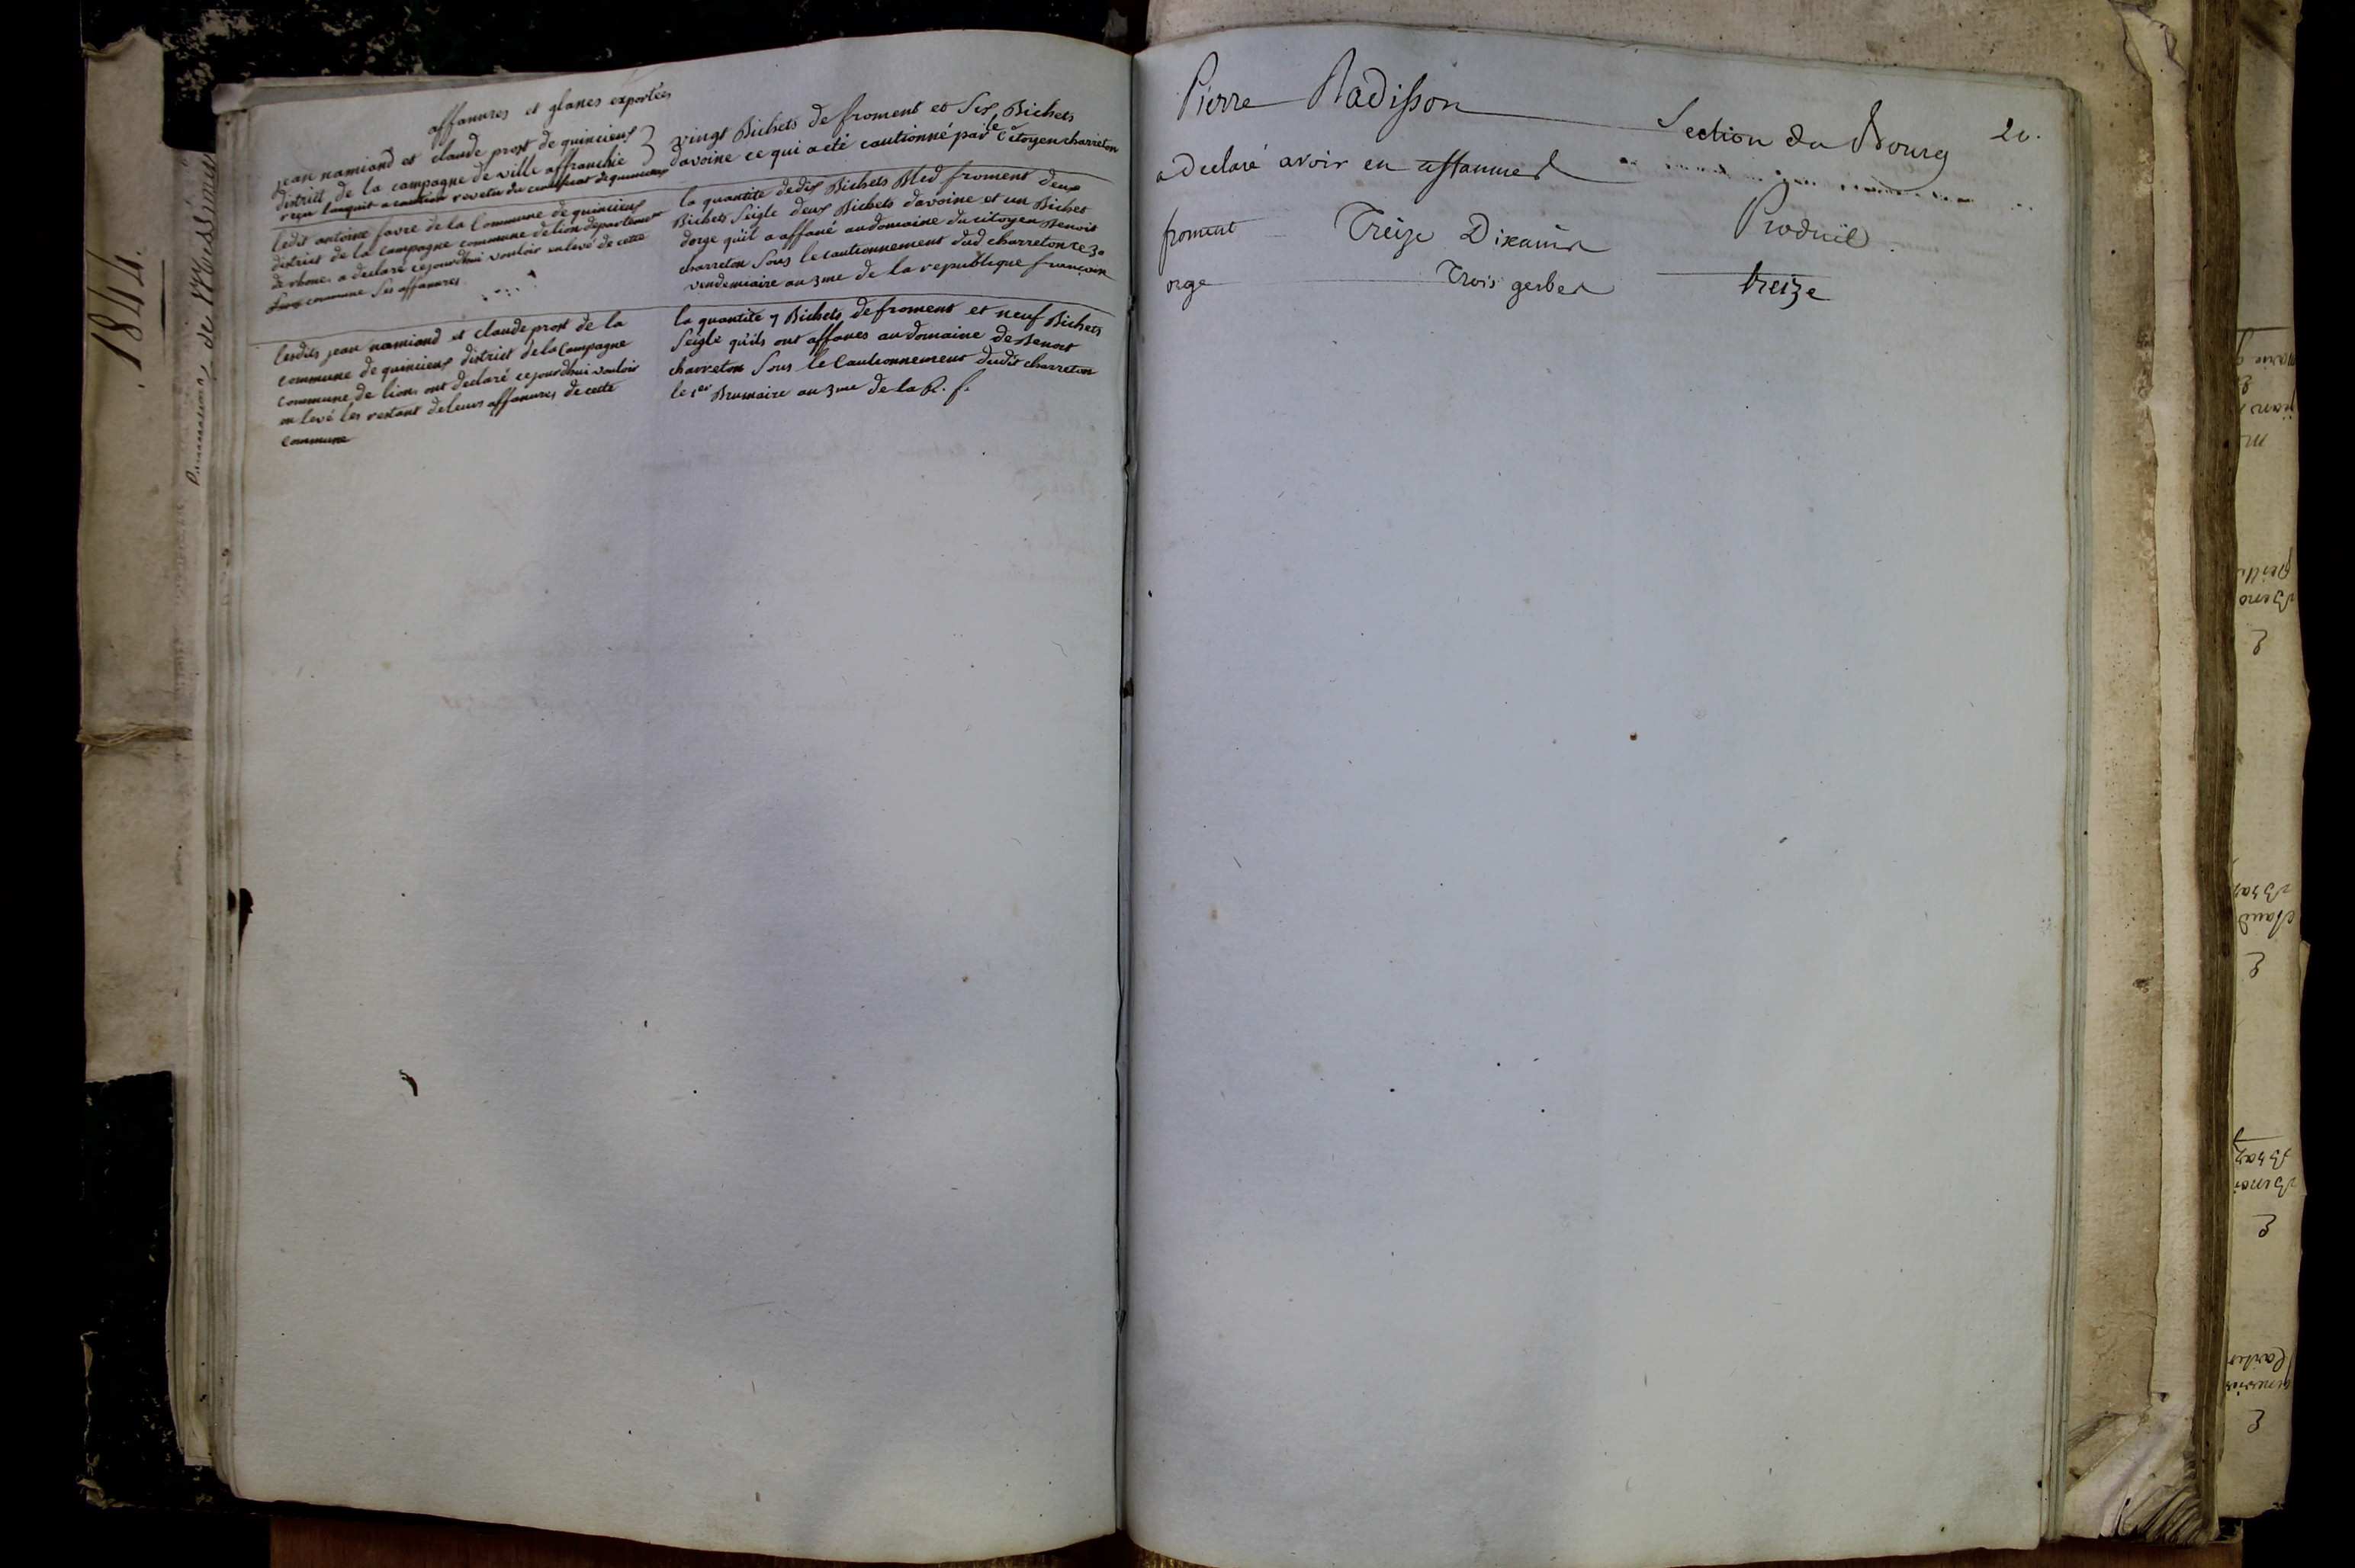 affanures et glanes exportées
jean namiand et claude prost de quincieux
district de la campagne de ville affranchie
reçu l'acquit a caution revetu du certificat de quincieux
vingt Bichets de froment et Six Bichets
davoine ce qui a été cautionné par le Citoyen charreton
ledit antoine favre de la Commune de quincieux
district de la Campagne commune de lion departement
de rhone, a declaré cejourdhui vouloir enlevé de cette
commune Ses affanures
la quantité de dix Bichets Bled froment deux
Bichets Seigle deux Bichets davoine et un Bichet
dorge qu'il a affané au domaine du citoyen Benoit
charreton Sous le cautionnement dud charreton ce 30
vendemiaire an 3me de la republique francoise
lesdits jean namiand et claude prost de la
commune de quincieux district de la Campagne
commune de lion, ont declaré cejourdhui vouloir
enlevé les restant de leurs affanures de cette
commune
la quantité 7 Bichets de froment et neuf Bichets
Seigle qu'ils ont affanés au domaine de Benoit
charreton Sous le Cautionnement dudit charreton
le 1er Brumaire an 3me de la R. f.
Pierre Radisson
Section du Bourg 20.
a declaré avoir en affanures
froment Treize Dixaines
Produit
orge Trois gerbes
treize
1844.